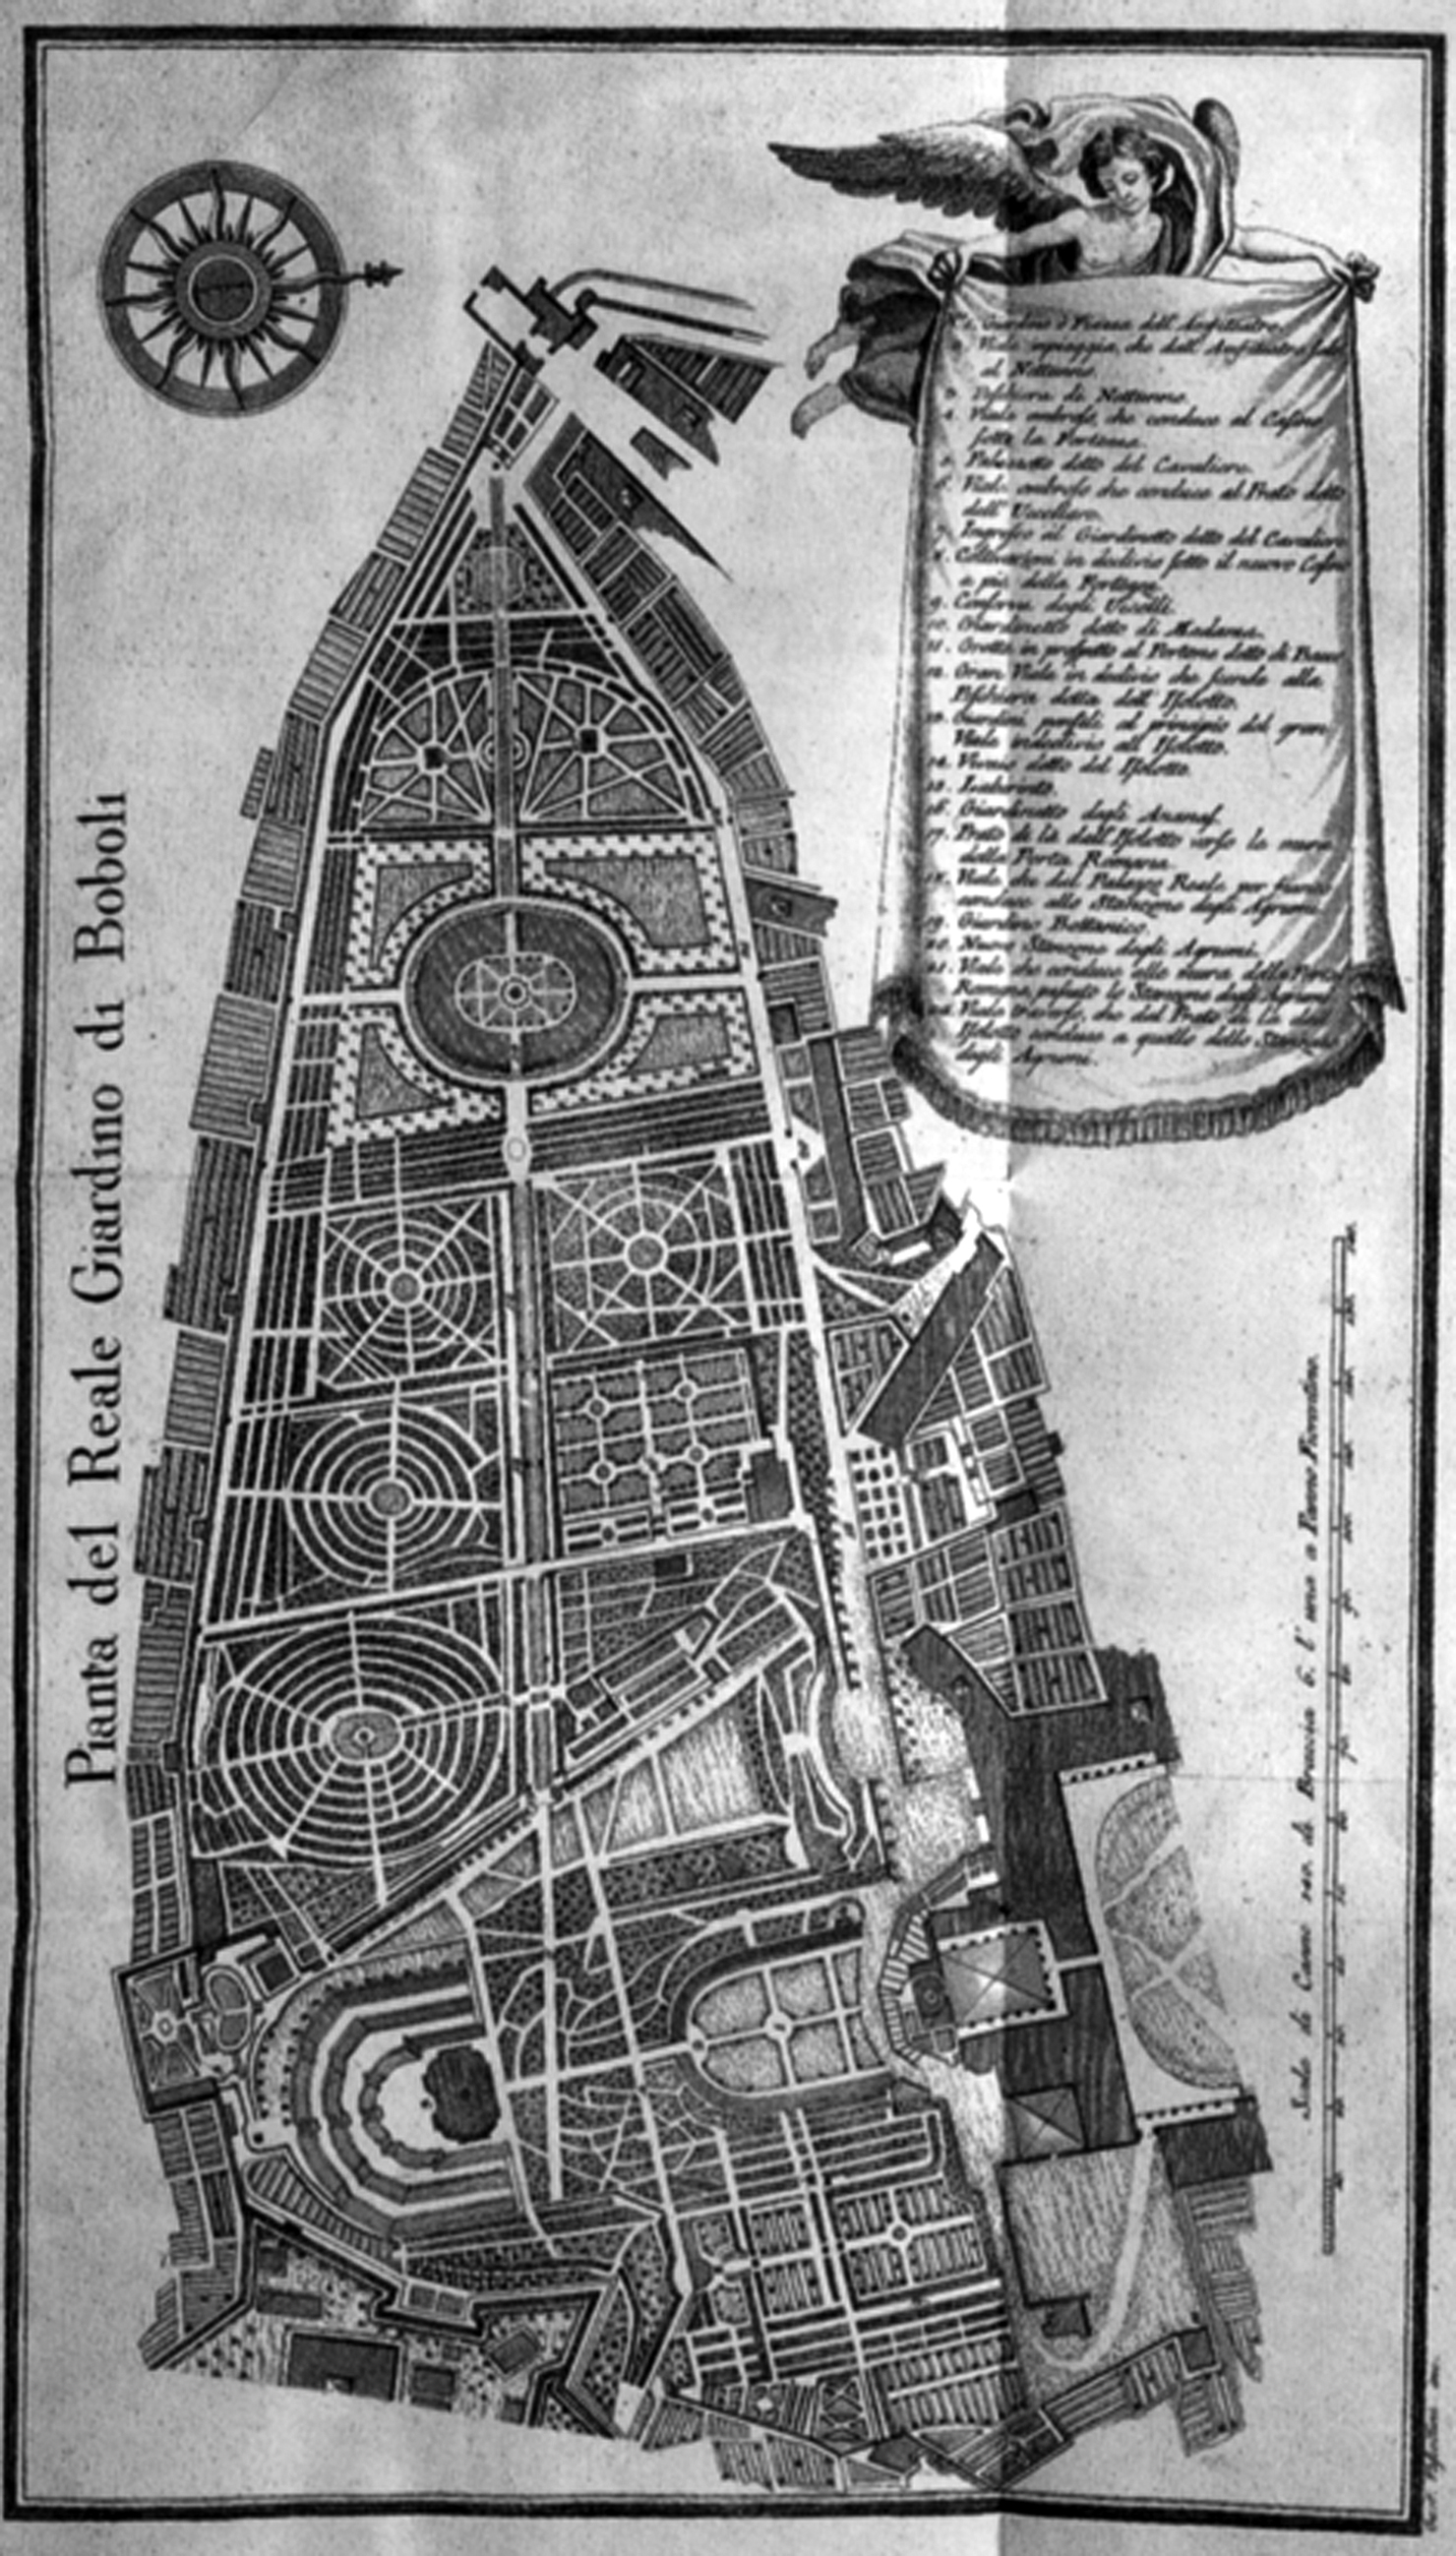 Pianta del Reale Giardino di Boboli
1. Giardino o Piazza dell' Anfiteatro.
2. Viale spiaggia, che dall' Anfiteatro
al Nettunno.
3. Peschiera di Nettunno.
4. Viale ombroso, che conduce al Casino
sotto la Fortezza.
5. Palazzotto detto del Cavaliere.
6. Viale ombroso che conduce al Prato detto
dell' Uccellare.
7. Ingresso al Giardinetto detto del Cavaliere
8. Coltivazioni in declivio sotto il nuovo Casino
a piè della Fortezza.
9. Conserva degli Uccelli.
10. Giardinetto detto di Madama.
11. Grotta in prospetto al Portone detto di Piazza
12. Gran Viale in declivio che scende alla
Peschiera detta dell' Isolotto.
13. Giardini posti al principio del gran
Viale indeclivio all' Isolotto.
14. Vivaio detto del Isolotto.
15. Laberinto.
16. Giardinetto degli Ananas.
17. Prato di là dall' Isolotto verso le mura
della Porta Romana.
18. Viale che dal Palazzo Reale per fianco
conduce allo Stanzone degli Agrumi.
19. Giardino Bottanico.
20. Nuovo Stanzone degli Agrumi.
21. Viale che conduce alle mura della Porta
Romana, passato lo Stanzone degli Agrumi
22. Viale traverso, che dal Prato di là dall'
Isolotto conduce a quello dello Stanzone
degli Agrumi.
Scala di Canne di Braccia 6. l' una a Panno Fiorentino.